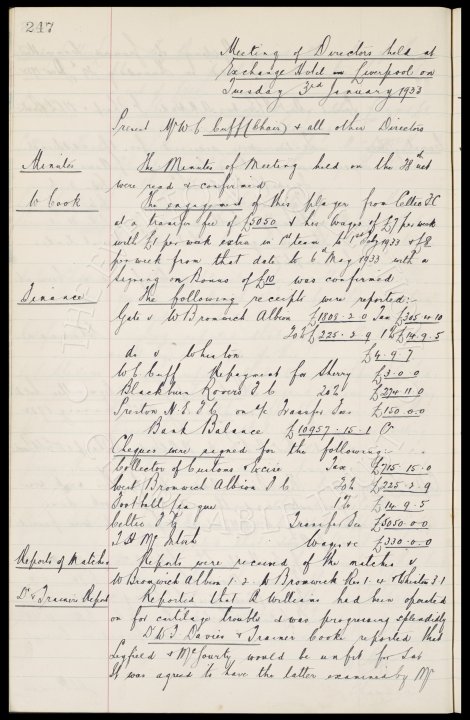 247
Meeting of Directors held at
Exchange Hotel in Liverpool on
Tuesday 3rd January 1933
Present Mr W C Cuff (Chair) & all other Directors
Minutes
The Minutes of Meeting held on the 28th ult
were read & confirmed
W Cook
The engagement of this player from Celtic FC
at a transfer fee of £5050 & his wages of £7 per week
with £1 per week extra in 1st team to 1st July 1933 & £8
per week from that date to 6th May 1933 with a
signing on Bonus of £10 was confirmed
Finance
The following receipts were reported:-
Gate v W Bromwich Albion £1808.2.0 Tax £305.4.10
20% £225.2.9 1% £14.9.5
do v Wheaton £4.9.7
W C Cuff Repayment for Sherry £3.0.0
Blackburn Rovers F C 20% £274.11.0
Preston N.E. F C on a/c Transfer Fee £150.0.0
Bank Balance £10957.15.1 Cr
Cheques were signed for the following:-
Collector of Customs & Excise Tax £715.15.0
West Bromwich Albion F C 20% £225.2.9
Football League 1% £14.9.5
Celtic F C Transfer Fee £5050.0.0
T H McIntosh Wages &c £330.0.0
Reports of Matches
Reports were received of the matches v
W Bromwich Albion 1.2. W Bromwich Res 1.4 & Chester 3.1
Dr & Trainers Report
Reported that A Williams had been operated
on for cartilage trouble & was progressing splendidly
Dr D J Davies & Trainer Cooke reported that
& McGourty would be unfit for Sat
It was agreed to have the latter examined by Mr